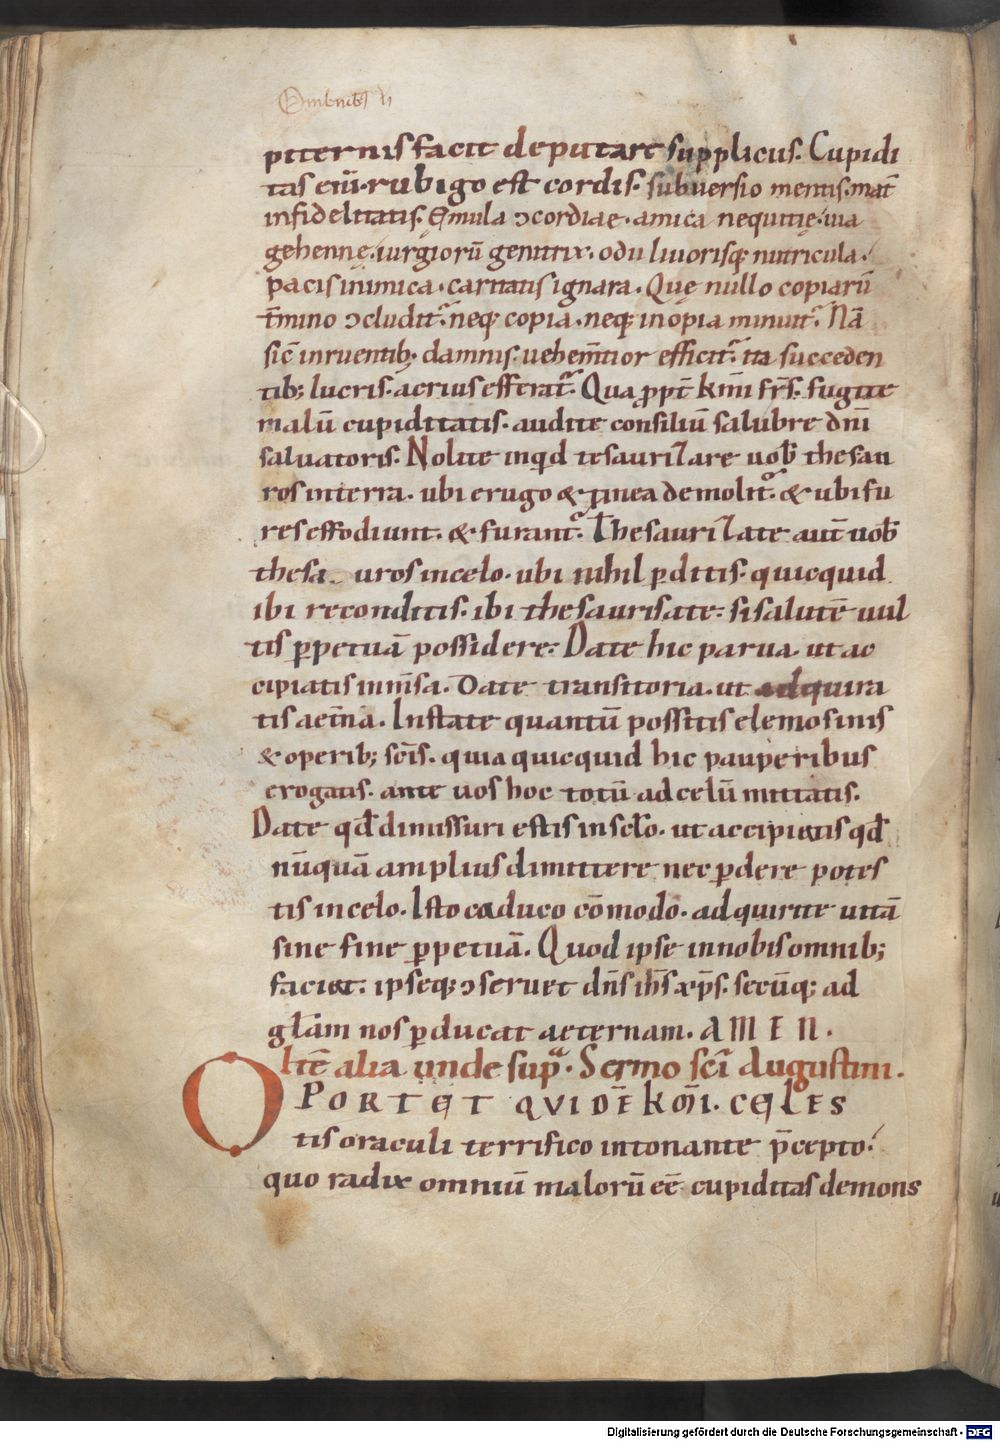 piternis facit deputare suppliciis. Cupidi
tas eni̅. rubigo est cordis. subversio mentis. mat̅
infidelitatis. Emula ↄcordiae. amica nequitię. uia
gehennę. iurgioru̅ genitrix. odii liuorisq; nutricula.
pacis inimica. caritatis ignara. Quę nullo copiaru̅
t̅mino ↄcludit᷑. neq; copia. neq; inopia minuit᷑. Na̅
sic̅ inruentib; damnis. uehem̅tior efficit᷑. ita succeden
tib; lucris. acrius efferat᷑. Qua ꝓpt̅ km̅i fr̅s. fugite
malu̅ cupiditatis. audite consiliu̅ salubre dn̅i
saluatoris. Nolite inqͥd tesaurizare uob̅ thesau
ros in terra. ubi erugo & tinea demolit᷑. & ubi fu
res effodiunt. & furant᷑. Thesaurizate aut̅ uob̅
thesa uros in celo. ubi nihil ꝑditis. quicquid
ibi reconditis. ibi thesaurisate. si salute̅ uul
tis ꝑpetua̅ possidere. Date hic parua. ut ac
cipiatis inm̅sa. Date transitoria. ut adquira
tis aet̅na. Instate quantu̅ possitis elemosinis
& operib; sc̅is. quia quicquid hic pauperibus
erogatis. ante uos hoc totu̅ ad celu̅ mittatis.
Date qd̅ dimissuri estis in sc̅lo. ut accipiatis qd̅
nu̅qua̅ amplius dimittere nec ꝑdere potes
tis in celo. Isto caduco co̅modo. adquirite uita̅
sine fine ꝑpetua̅. Quod ipse in nobis omnib;
faciat. ipseq; ↄseruet dn̅s ih̅s xp̅s. secu̅q; ad
gl̅am nos ꝑducat aeternam. AMEN.
Ite̅ alia unde supᷓ. Sermo sc̅i Augustini.
OPORTET QVIDE̅ km̅i. CELES
tis oraculi terrifico intonante p̅cepto.
quo radix omniu̅ maloru̅ ee̅ cupiditas demons
Digitalisierung gefördert durch die Deutsche Forschungsgemeinschaft - DFG